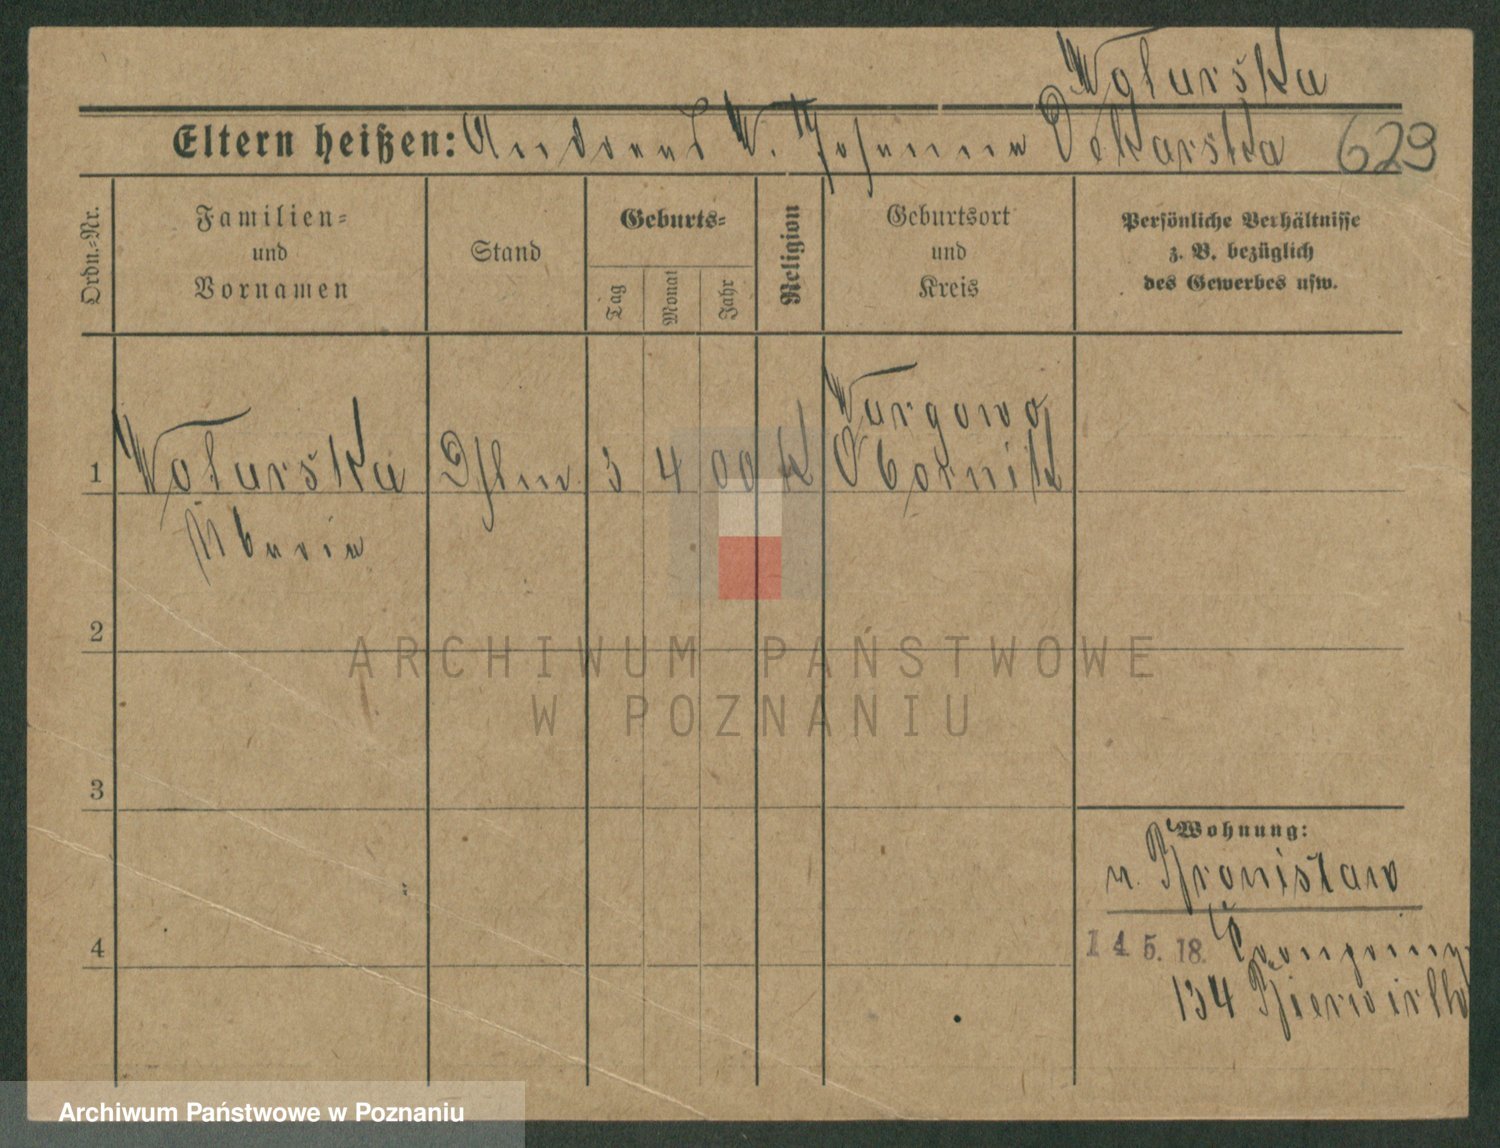 Wolarska
Eltern heißen: Andreas W. Johanna Pekarska 629
Ordn.-Nr.
Familien-
und
Vornamen
Stand
Geburts-
Tag
Monat
Jahr
Religion
Geburtsort
und
Kreis
Persönliche Verhältnisse
z. B. bezüglich
des Gewerbes usw.
1 Wolarska 3 4 00 K Wargowo
Obornik
Maria
2
ARCHIWUM PAŃSTWOWE
W POZNANIU
3
Wohnung:
n. Bronisław
14 5. 18.
134
4
Archiwum Państwowe w Poznaniu